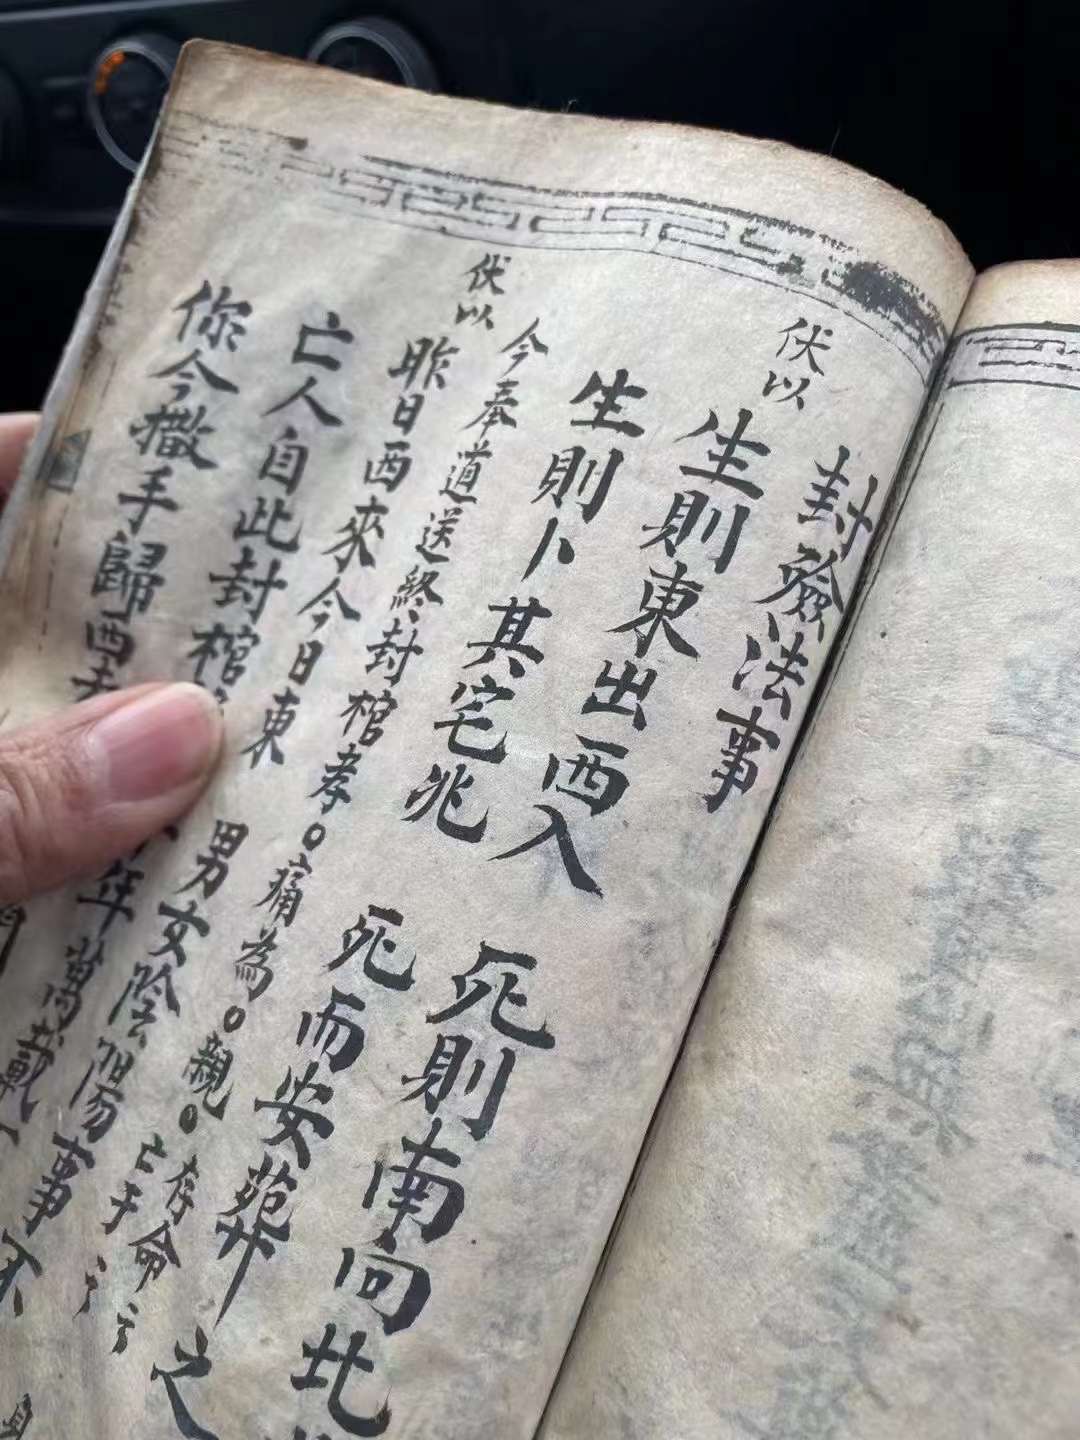 封殮法事
伏以 生則東出西入 死則南向北
生則卜其宅兆 死而安葬之
今奉道送終封棺孝〇痛為〇親〇存命 亡于
伏以 昨日西來今日東 男女陰陽事不
亡人自此封棺 年萬載
你今撒手歸西